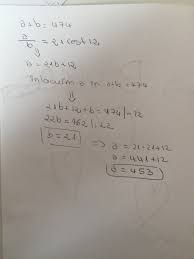 a+b=474
a/b = 21 rest 12
a=21b+12
Înlocuim a în a+b=474
21b+12+b=474 |-12
22b=462 |:22
b=21 => a=21·21+12
a=441+12
a=453